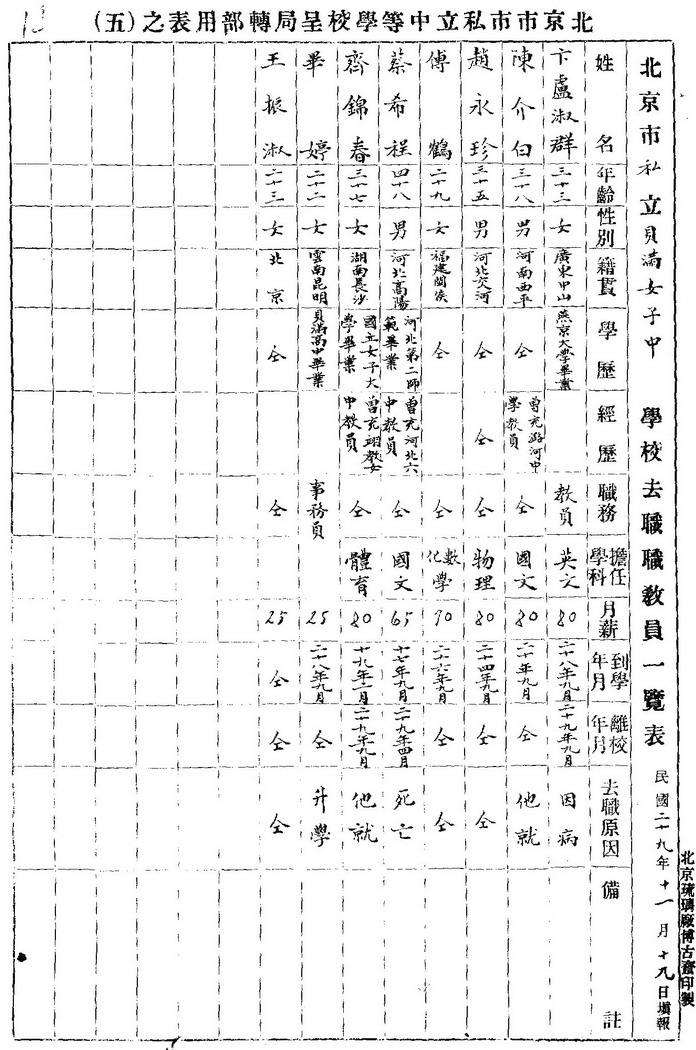 北京市市私立中等學校呈局轉部用表之(五)
北京市私立貝滿女子中學校去職職教員一覽表
民國二十九年十一月十九日填報
北京琉璃廠博古齋印製
姓名 年齡 性別 籍貫 學歷 經歷 職務 擔任學科 月薪 到學年月 離校年月 去職原因 備註
卞盧淑群 三十三 女 廣東中山 燕京大學畢業 教員 英文 80 二十八年九月 二十九年九月 因病
陳介白 三十八 男 河南西平 仝 曾充潞河中學教員 仝 國文 80 二十年九月 仝 他就
趙永珍 三十五 男 河北交河 仝 仝 仝 物理 80 二十四年九月 仝 仝
傅鶴 二十九 女 福建閩侯 仝 仝 數學化學 二十六年九月 仝 仝
蔡希程 四十八 男 河北高陽 河北第二師範畢業 曾充河北六中教員 仝 國文 65 十七年九月 二十九年四月 死亡
齊錦春 三十七 女 湖南長沙 國立女子大學畢業 曾充翊教女中教員 仝 體育 80 十九年二月 二十九年九月 他就
畢婷 二十二 女 雲南昆明 貝滿高中畢業 事務員 25 二十八年九月 仝 升學
王振淑 二十三 女 北京 仝 仝 25 仝 仝 仝